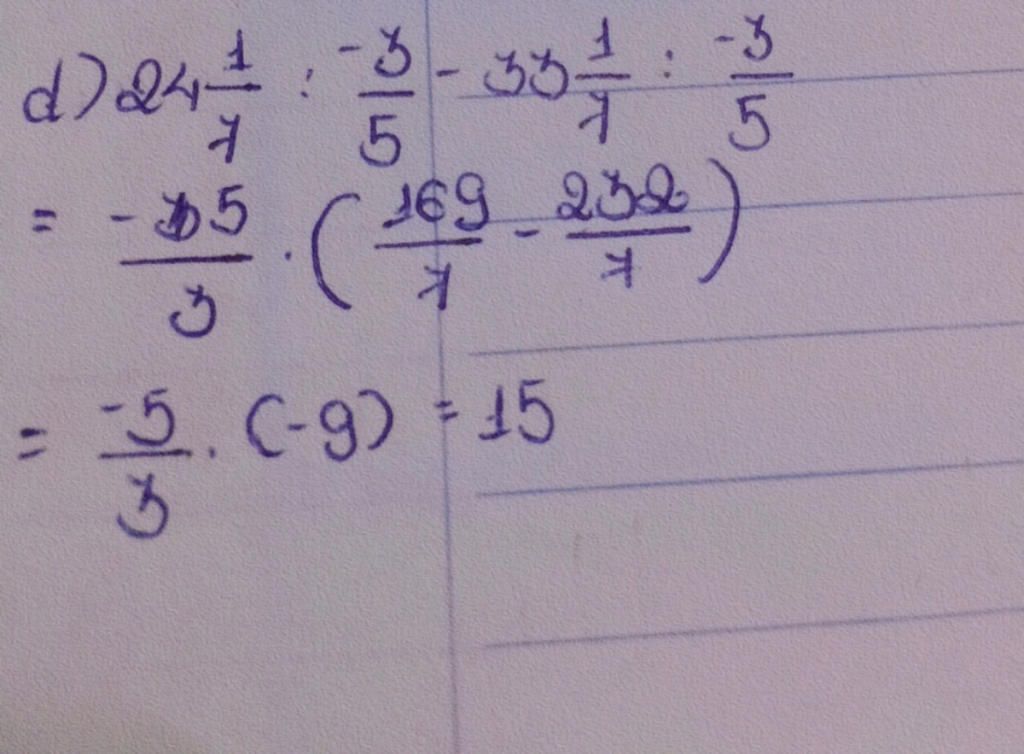 d) 24 1/7 : -3/5 - 33 1/7 : -3/5
= -5/3 . (169/7 - 232/7)
= -5/3 . (-9) = 15